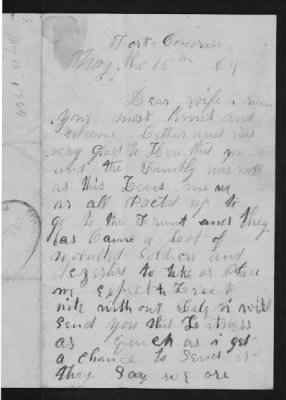 Fort Corcoran
May the 16th 64
Dear wife i
your most kind and
welcome Letter and was
very glad to Hear that you
and the Family was well
as this Leves me
as all Pact up to
go to the Frunt and they
has Came a Lot of
wounded Soldiers and
dezertes to take
my
nite with out fale i will
Send you that Likness
as Quick as i get
a chance to Send it
thay Say we are